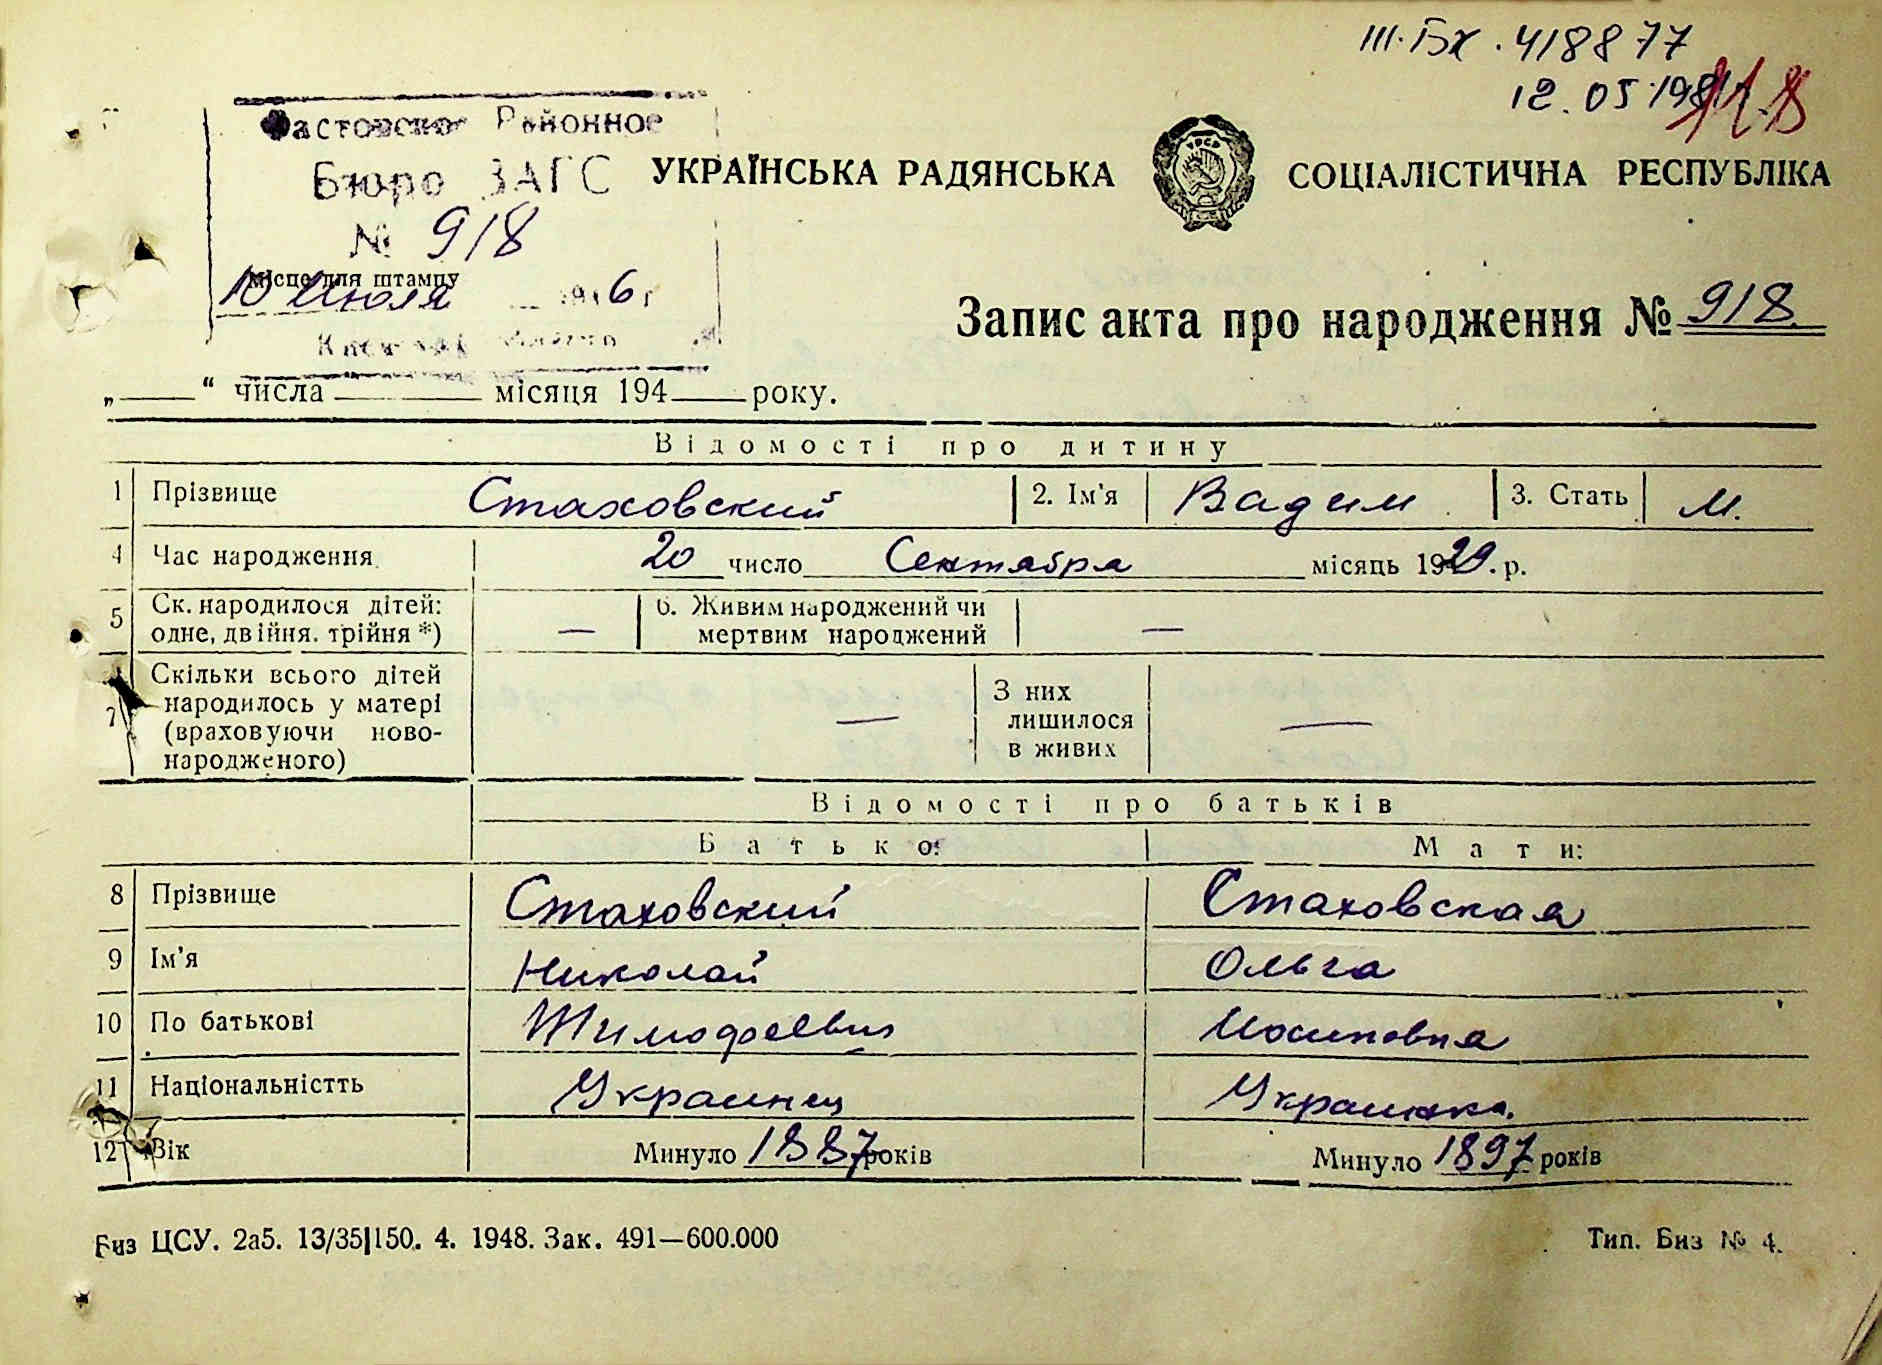 III·БХ. 418877
12.05.1981
118
Фастовское Районное
Бюро ЗАГС
№ 918
місце для штампу
10 Июля 6 г
УКРАЇНСЬКА РАДЯНСЬКА СОЦІАЛІСТИЧНА РЕСПУБЛІКА
УРСР
Запис акта про народження № 918.
„ “ числа місяця 194 року.
Відомості про дитину
1 Прізвище Стаховский 2. Ім'я Вадим 3. Стать М.
4 Час народження 20 число Сентября місяць 1929. р.
5 Ск. народилося дітей: одне, двійня. трійня *) — 6. Живим народжений чи мертвим народжений —
7 Скільки всього дітей народилось у матері (враховуючи ново-народженого) — З них лишилося в живих —
Відомості про батьків
Батько: Мати:
8 Прізвище Стаховский Стаховская
9 Ім'я Николай Ольга
10 По батькові Тимофеевич Иосиповна
11 Національністть Украинец Украинка.
12 Вік Минуло 1887 років Минуло 1897 років
Биз ЦСУ. 2а5. 13/35|150. 4. 1948. Зак. 491—600.000 Тип. Биз № 4.